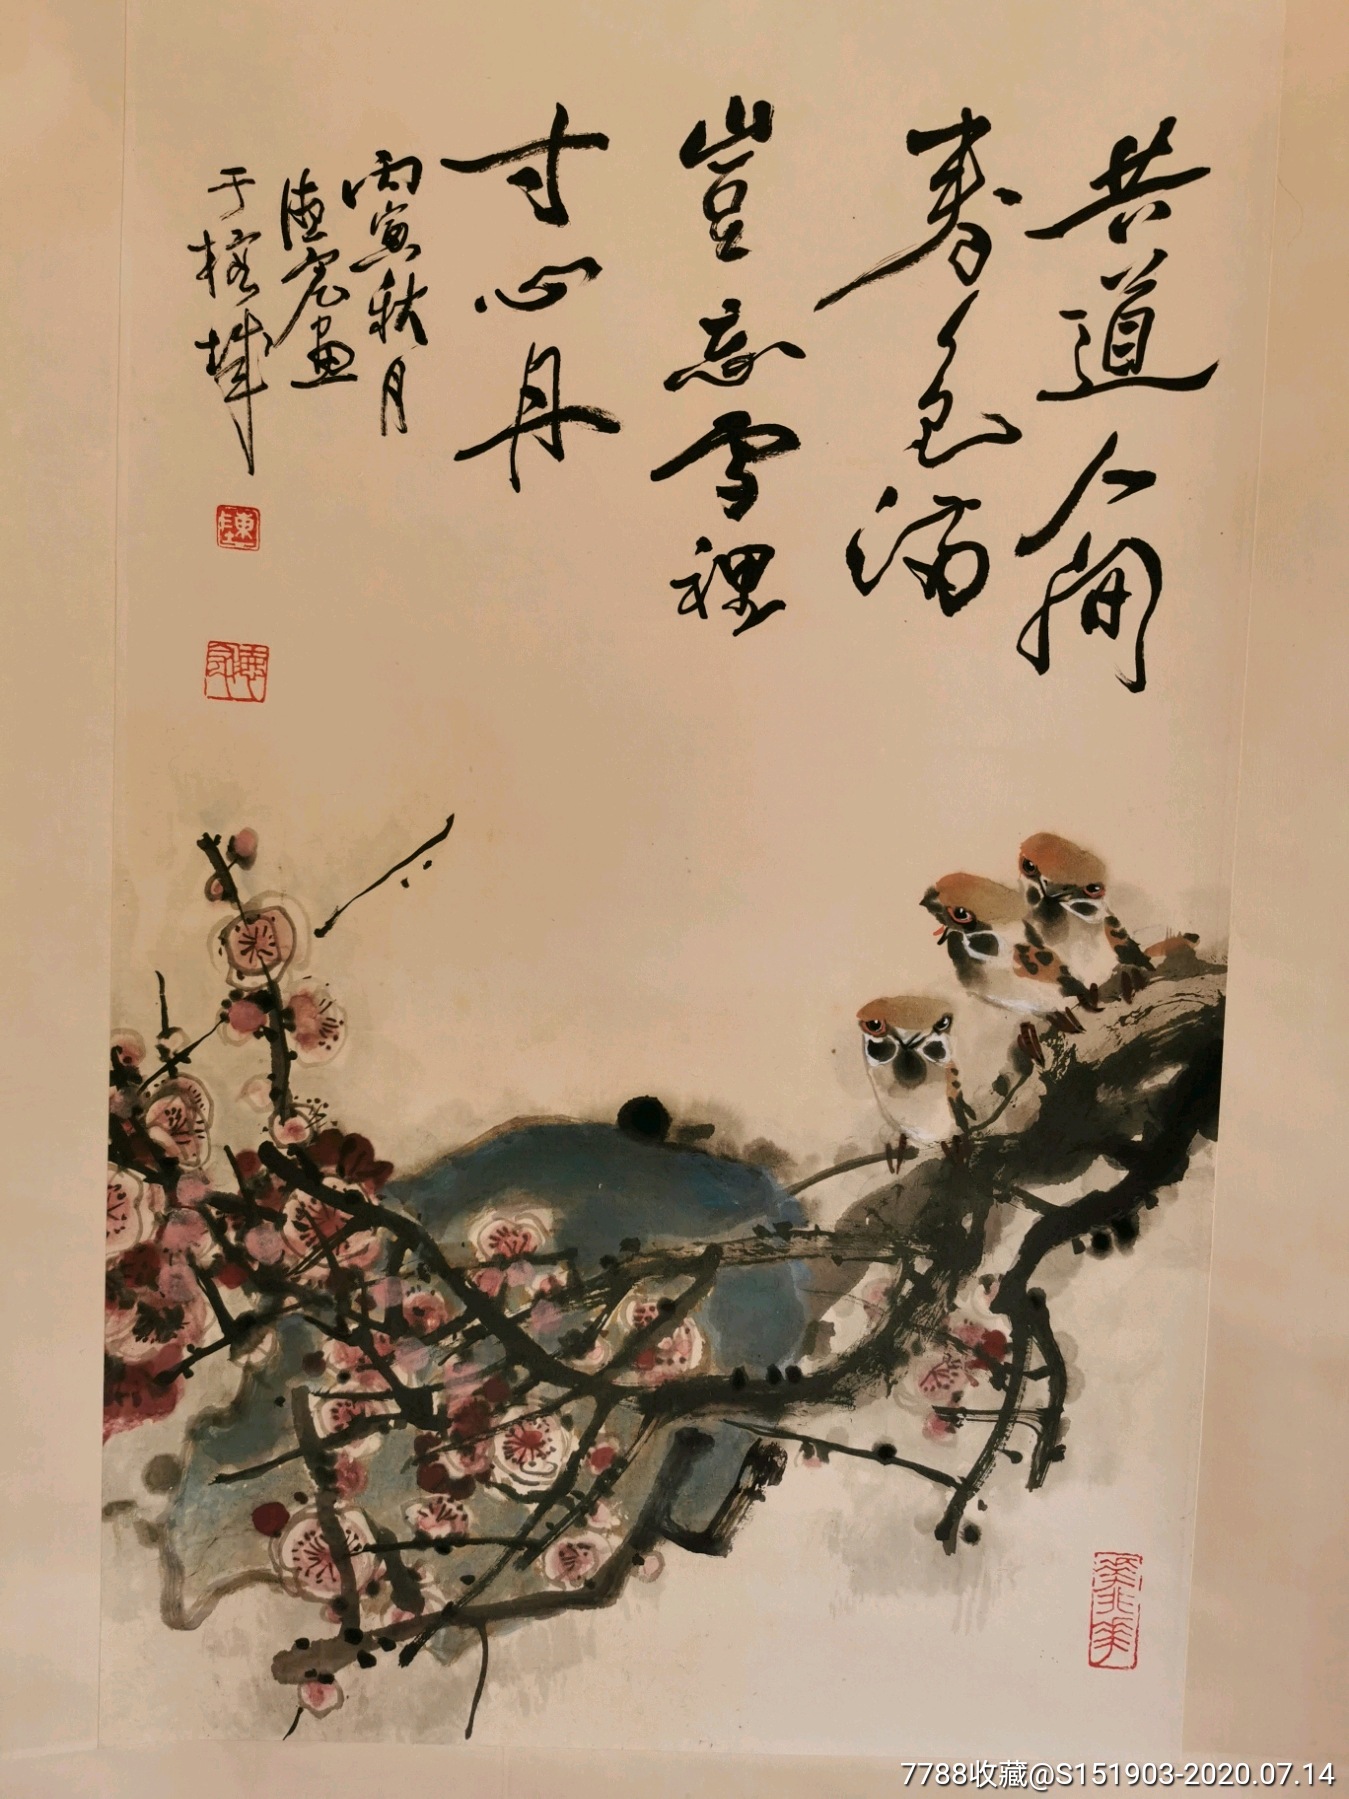 共道人间
春色满
岂忘雪裡
寸心丹
丙寅秋月
德宏画
于榕城
7788收藏@S151903-2020.07.14